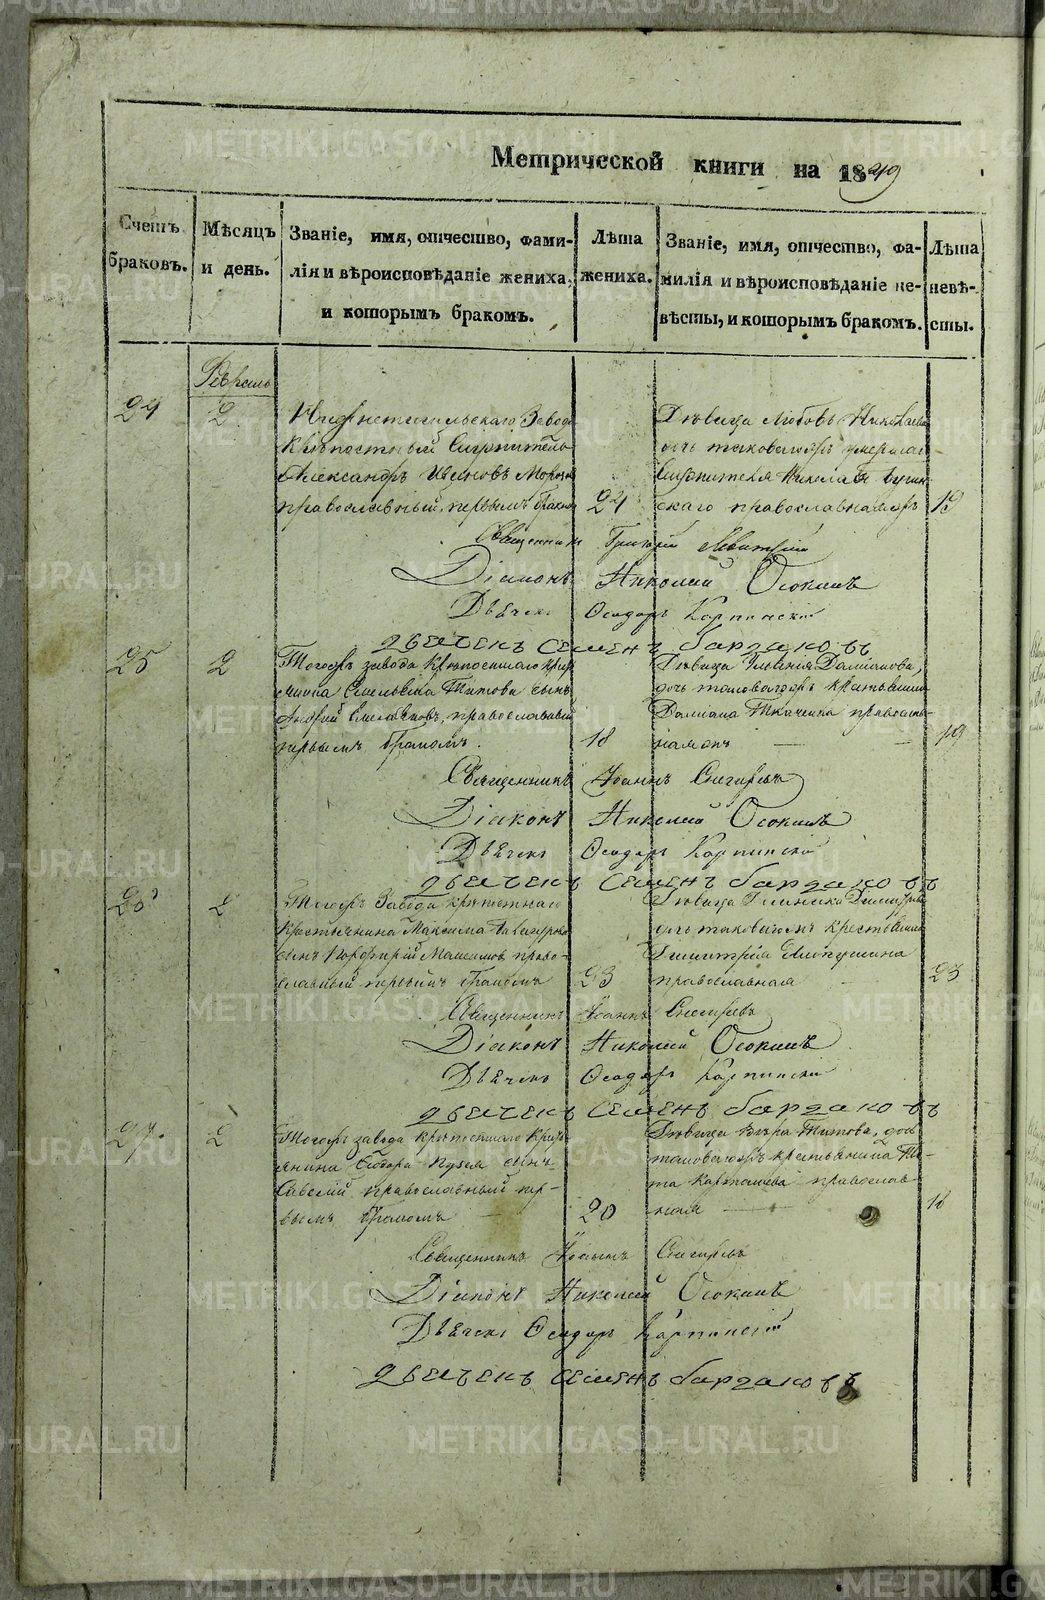 METRIKI.GASO-URAL.RU
Метрической книги на 1849
Счетъ браковъ.
Мѣсяцъ и день.
Званіе, имя, отчество, фами-
лія и вѣроисповѣданіе жениха,
и которымъ бракомъ.
Лѣта
жениха.
Званіе, имя, отчество, фа-
милія и вѣроисповѣданіе не-
вѣсты, и которымъ бракомъ.
Лѣта
невѣ-
сты.
Февраль
24 2
Нижнетагильскаго Завода
Крѣпостный Служитель
Александръ Ивановъ
православный, первымъ бракомъ 24
Дѣвица Любовь Николаева
дочь таковагожъ умершаго
Служителя Николая
скаго православнаяжъ 19
Священникъ Григорій
Діаконъ Николай Осокинъ
Дьячекъ Ѳеодоръ Карпинскій
дьячекъ семенъ баргаковъ
25 2
Тогожъ завода крѣпостнаго крест
янина Емельяна Титова сынъ
Андрей Емельяновъ, православный
первымъ бракомъ. 18
Дѣвица Ульянія Даміанова,
дочь таковагожъ крестьянина
Даміана Ткаченка православ-
наяжъ — 19
Священникъ Іоаннъ Снегиревъ
Діаконъ Николай Осокинъ
Дьячекъ Ѳеодоръ Карпинскій
дьячекъ семенъ баргаковъ
26 2
Тогожъ Завода крѣпостнаго
Крестьянина Максима
сынъ Порфирій Максимовъ право-
славный первымъ бракомъ 23
Дѣвица Гликерія Димитріева
дочь таковагожъ крестьянина
Димитрія
православная 23
Священникъ Іоаннъ Снегиревъ
Діаконъ Николай Осокинъ
Дьячекъ Ѳеодоръ Карпинскій
дьячекъ семенъ баргаковъ
27. 2
Тогожъ завода крѣпостнаго крест
янина Ѳедора сынъ
Савелій православный пер-
вымъ бракомъ — 20
Дѣвица Вѣра Титова, дочь
таковагожъ крестьянина Ти-
та православ
ная — 18
Священникъ Іоаннъ Снегиревъ
Діаконъ Николай Осокинъ
Дьячекъ Ѳеодоръ Карпинскій
дьячекъ семенъ баргаковъ